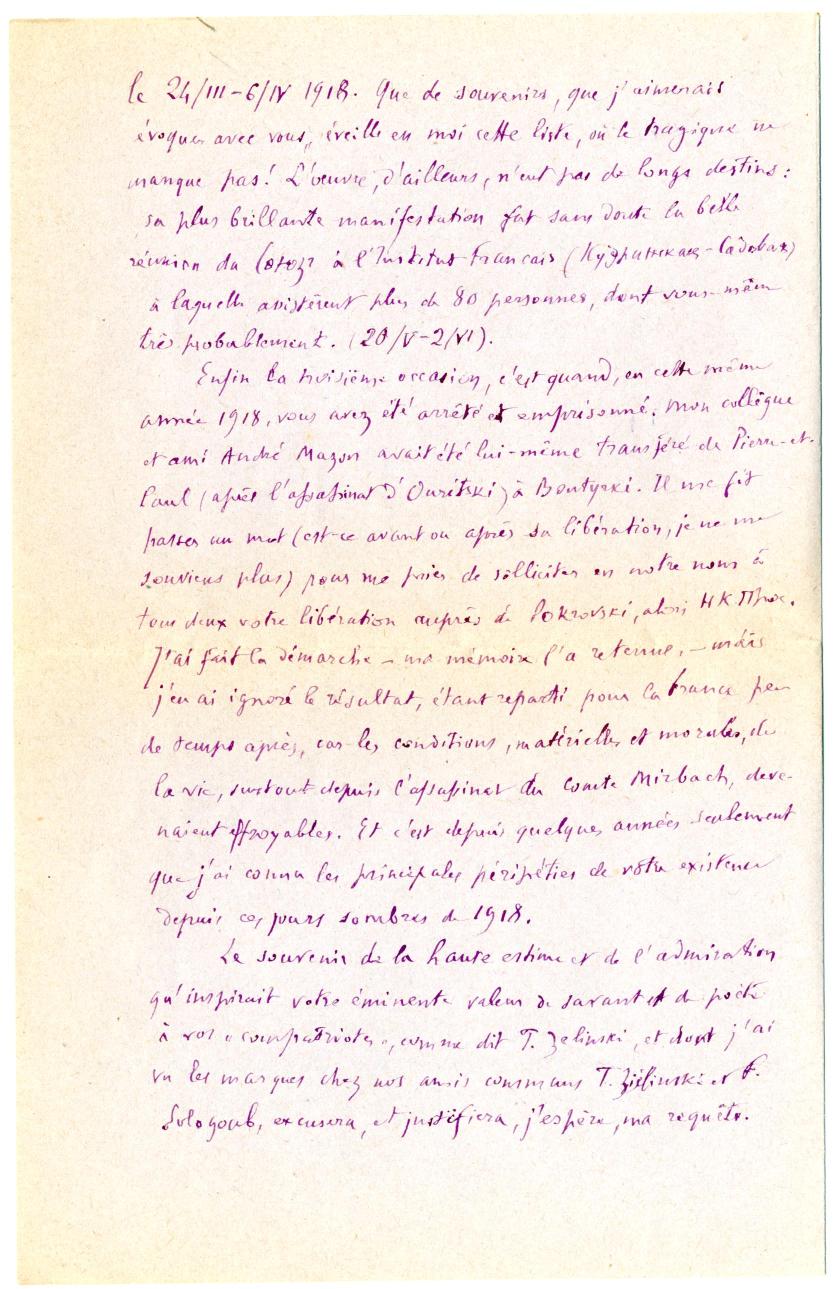 le 24/III-6/IV 1918. Que de souvenirs, que j'aimerais
évoquer avec vous, éveille en moi cette liste, où le tragique ne
manque pas! L'œuvre, d'ailleurs, n'eut pas de longs destins:
sa plus brillante manifestation fut sans doute la belle
réunion du à l'Institut Français (Кудринская-Садовая)
à laquelle assistèrent plus de 80 personnes, dont vous-même
très probablement. (20/V-2/VI).
Enfin la troisième occasion, c'est quand, en cette même
année 1918, vous avez été arrêté et emprisonné. Mon collègue
et ami André Mazon avait été lui-même transféré de Pierre-et-
Paul (après l'assassinat d'Ouritski) à Boutyrki. Il me fit
passer un mot (est-ce avant ou après sa libération, je ne me
souviens plus) pour me prier de solliciter en notre nom à
tous deux votre libération auprès de Pokrovski, alors НКПрос.
J'ai fait la démarche – ma mémoire l'a retenue, – mais
j'en ai ignoré le résultat, étant reparti pour la France peu
de temps après, car les conditions, matérielles et morales, de
la vie, surtout depuis l'assassinat du comte Mirbach, deve-
naient effroyables. Et c'est depuis quelques années seulement
que j'ai connu les principales péripéties de votre existence
depuis ces jours sombres de 1918.
Le souvenir de la haute estime et de l'admiration
qu'inspirait votre éminente valeur de savant et de poète
à vos « compatriotes », comme dit T. Zelinski, et dont j'ai
vu les marques chez nos amis communs T. Ziélinski et F.
Sologoub, excusera, et justifiera, j'espère, ma requête.